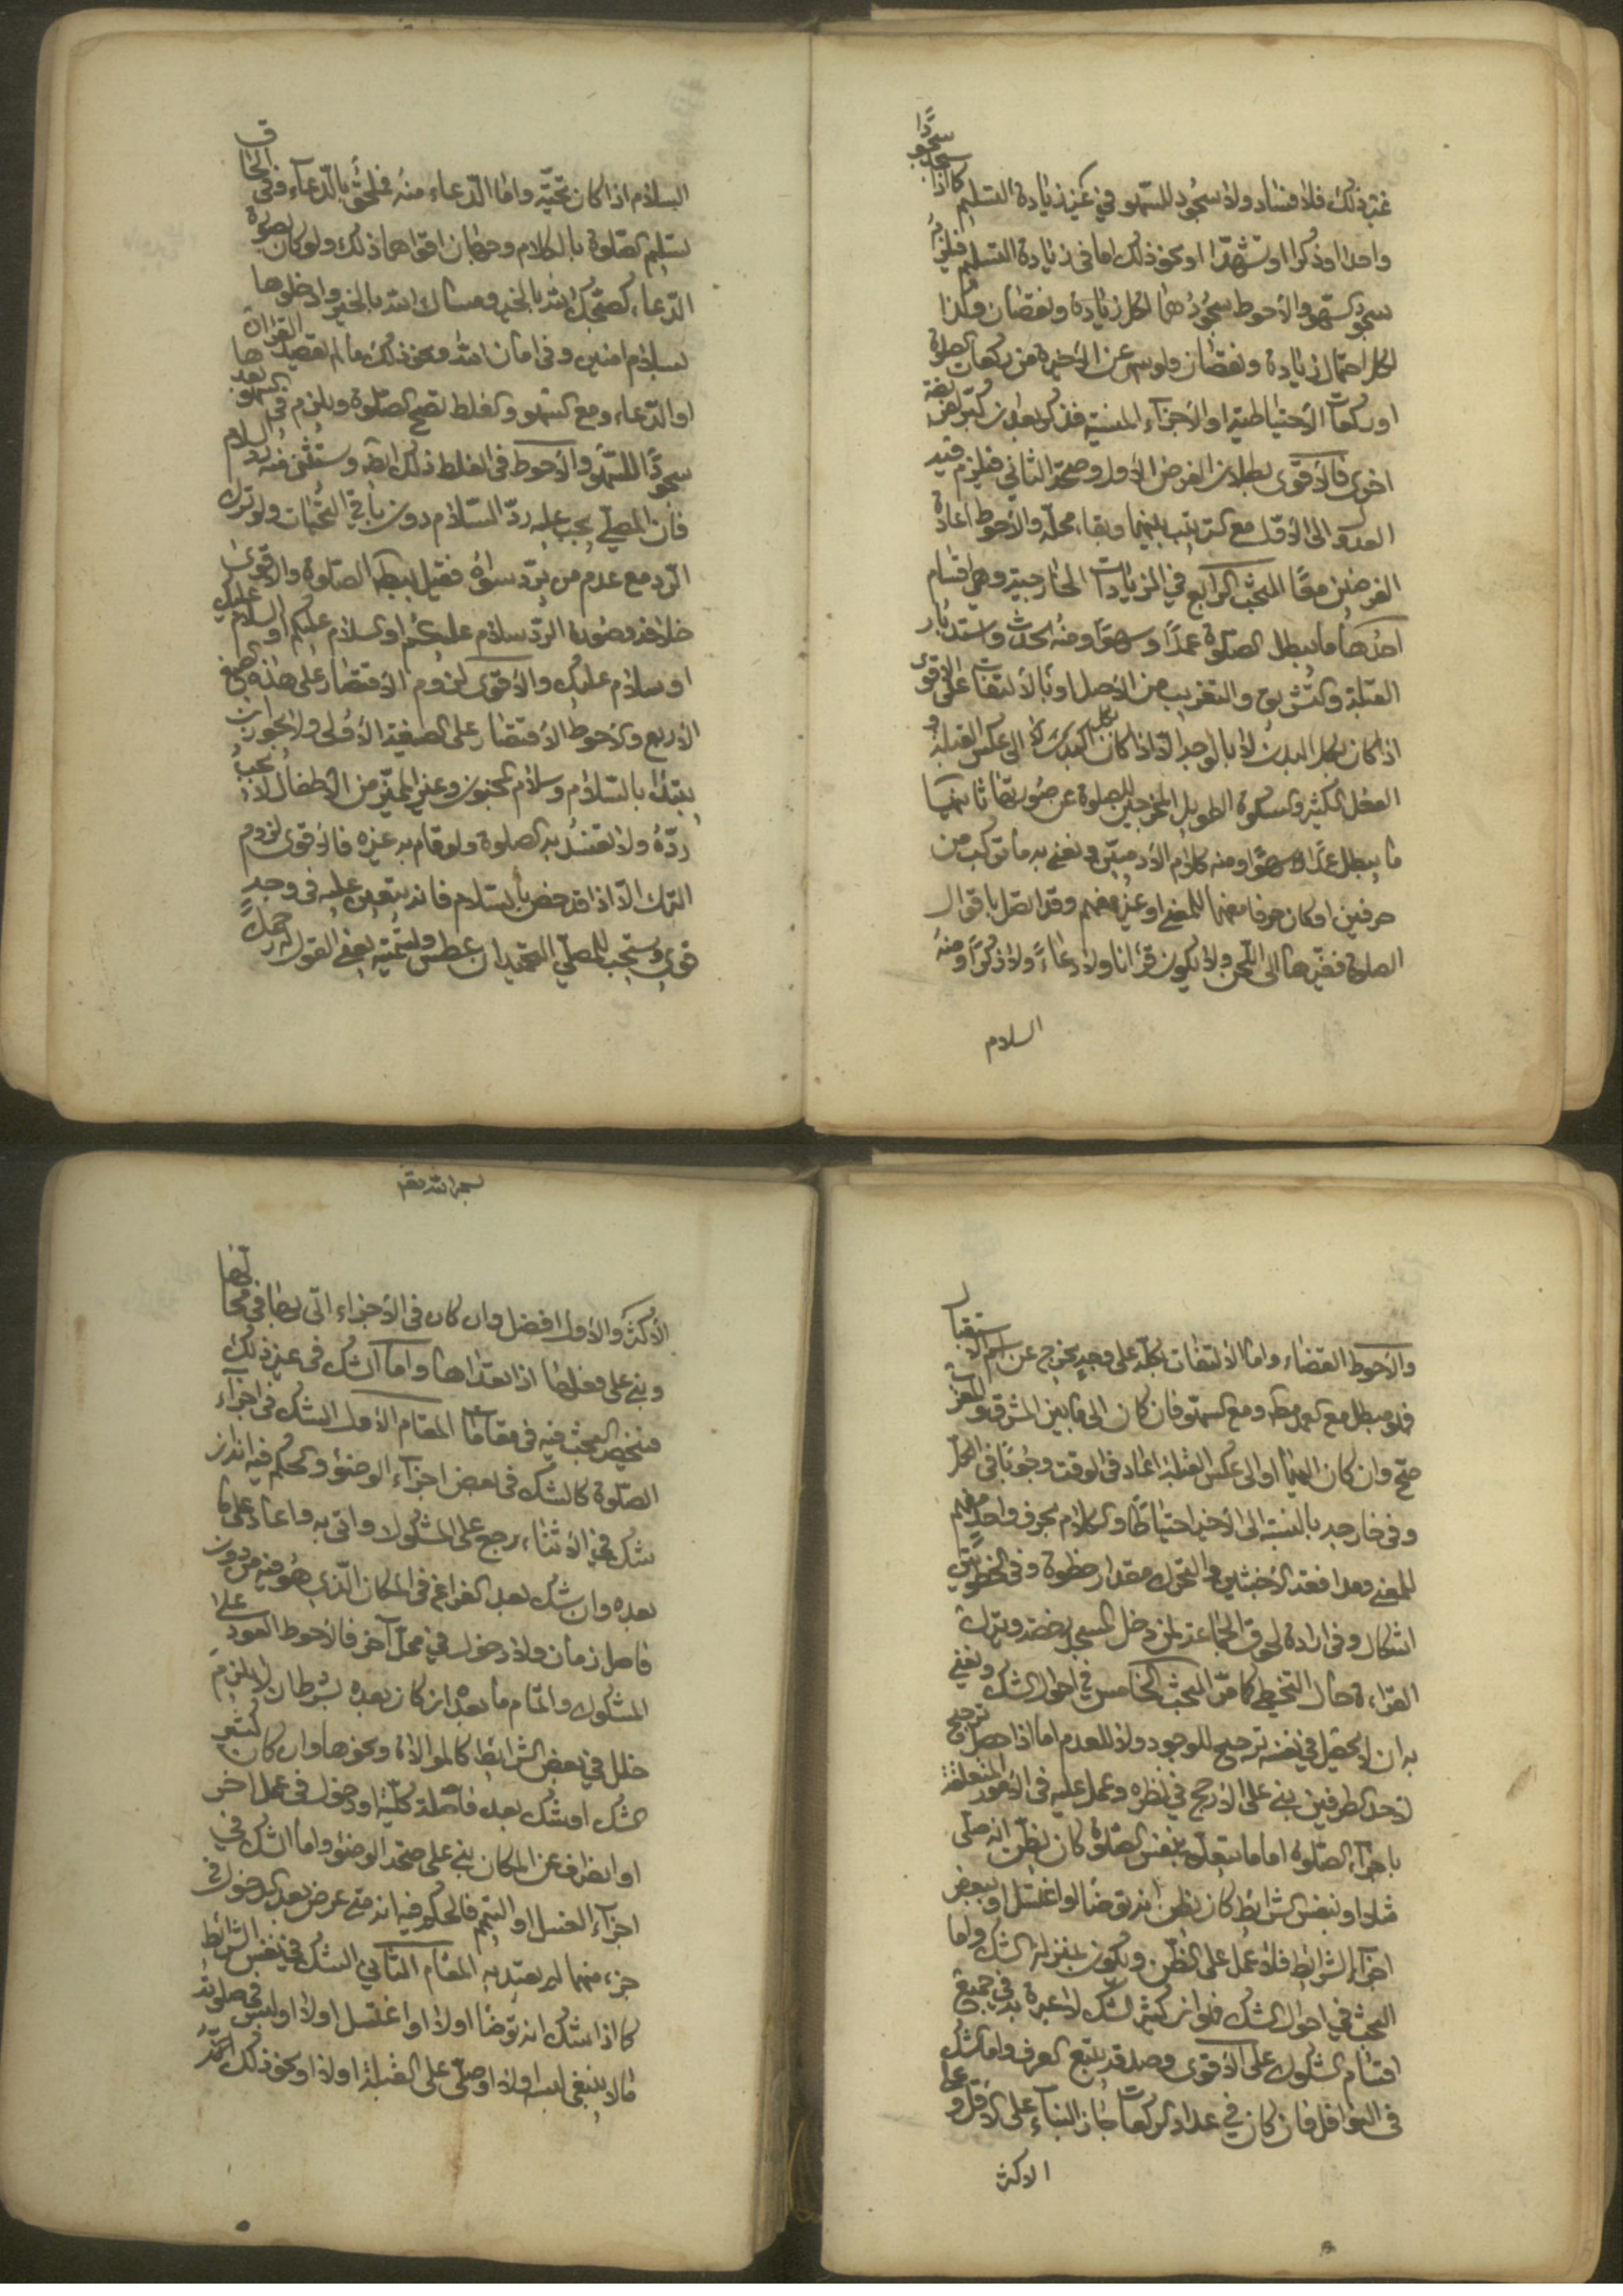 غير ذلك فلا فساد ولا سجود للسهو في غير زيادة التسليم كما اذا سجد سجودا
واحدا او ذكرا او تشهدا او نحو ذلك اما في زيادة التسليم فيلزم
سجود السهو والاحوط سجودهما لكل زيادة ونقصان وكذا
لكل احتمال زيادة ونقصان ولو سهى عن الاخيرة من ركعات الصلوة
او ركعات الاحتياطية او الاجزاء المنسية فذكر بعد ان كبر لفريضة
اخرى فالاقوى بطلان الفرض الاول وصحة الثاني فيلزم فيه
العدول الى الاول مع الترتيب بينهما وبقاء محله والاحوط اعادة
الفرضين معا المبحث الرابع في الزيادات الخارجية وهي اقسام
احدها ما يبطل الصلوة عمدا وسهوا ومنه الحدث واستدبار
القبلة والتشريق والتغريب من الاصل او بالالتفات على الاقوى
اذا كان بكل البدن لا بالوجه الا اذا كان بكل البدن او الى عكس القبلة و
الفعل الكثير والسكوت الطويل المخرجين للصلوة عن صورتها ثانيها
ما يبطل عمدا لا سهوا ومنه كلام الادميين ونعني به ما تركب من
حرفين او كان حرفا مفهما للمعنى او غير مفهم وقد اتصل باقوال
الصلوة فغيرها الى اللحن ولا يكون قرانا ولا دعاء ولا ذكرا ومنه
السلام
السلام اذا كان تحية واما الدعاء منه فملحق بالدعاء وفي الحاق
تسليم الصلوة بالكلام وجهان اقواهما ذلك ولو كان بصورة
الدعاء كصبحك الله بالخير ومساك الله بالخير وادخلوها
بسلام امنين وفي امان الله ونحو ذلك ما لم يقصد القران
او الدعاء ومع السهو والغلط تصح الصلوة ويلزم في السهو بعدها
سجودا للسهو والاحوط في الغلط ذلك ايضا ويستثنى منه رد السلام
فان المصلي يجب عليه رد السلام دون باقي التحيات ولو ترك
الرد مع عدم من يرد سواه فقيل ببطلان الصلوة والاقوى
خلافه وصورة الرد سلام عليكم او السلام عليكم او السلام عليك
او سلام عليك والاقوى لزوم الاقتصار على هذه الصيغ
الاربع والاحوط الاقتصار على الصيغة الاولى ولا يجوز ان
يبتدا بالسلام وسلام المجنون وغير المميز من الاطفال لا يجب
رده ولا تفسد به الصلوة ولو قام به غيره فالاقوى لزوم
الترك الا اذا قد خص بالسلام فانه يتعين عليه في وجه
قوي ويستحب للمصلي التحميد ان عطس وتسميته يعني القول له رحمك
والاحوط القضاء واما الالتفات بكله على وجه يخرج عن اسم الاستقبال
فهو مبطل مع العمد مطلقا ومع السهو فان كان الى ما بين المشرق والمغرب
صح وان كان اليهما او الى عكس القبلة اعاد في الوقت وجوبا في المحل
وفي خارجه بالنسبة الى الاخير احتياطا والكلام بحرف واحد مفهم
للمعنى وبعد افقد الاخبثين والتحرك مقدار خطوة وفي الخطوتين
اشكال وفي ارادة لحوق الجماعة لمن دخل المسجد رخصة ويترك
القراءة حال التخطي كما مر المبحث الخامس في احوال الشك ونعني
به ان لا يحصل في نفسه ترجيح للوجود ولا للعدم اما اذا حصل ترجيح
لاحد الطرفين بنى على الارجح في نظره وعمل عليه في الامور المتعلقة
باجزاء الصلوة اما ما يتعلق بنفس الصلوة كان يظن انه صلى
مثلا او بنفس الشرائط كان يظن انه توضا او اغتسل او ببعض
اجزاء الشرائط فلا عمل على الظن ويكون بمنزلة الشك واما
البحث في احوال الشك فهو ان كثير الشك لا عبرة به في جميع
اقسام الشكوك على الاقوى وصدقه يتبع العرف واما الشك
في النوافل فان كان في عداد الركعات جاز البناء على الاقل وعلى
الاكثر
بسم الله تعالى
الاكثر والاول افضل وان كان في الاجزاء اتى بها في محالها
وبنى على فعلها اذا تعداها واما الشك في غير ذلك
فيتلخص البحث فيه في مقامات المقام الاول الشك في اجزاء
الصلوة كالشك في بعض اجزاء الوضوء والحكم فيه انه ان
شك في الاثناء رجع على المشكوك واتى به واعاد على ما
بعده وان شك بعد الفراغ في المكان الذي هو فيه من دون
فاصل زمان ولا دخول في محل آخر فالاحوط العود على
المشكوك واتمام ما بعده ان كان بعده بشرط ان لا يلزم
خلل في بعض الشرائط كالموالاة ونحوها وان كان كثير
الشك او شك بعد فاصلة كلية او دخول في عمل اخر
او انصراف عن المكان بنى على صحة الوضوء واما الشك في
اجزاء الغسل او التيمم فالحكم فيه انه متى عرض بعد الدخول في
جزء منهما لم يعتد به المقام الثاني الشك في نفس الشرائط
كما اذا شك انه توضا او لا او اغتسل او لا او لبس في صلوته
ما لا ينبغي لبسه او لا او صلى على القبلة او لا او نحو ذلك